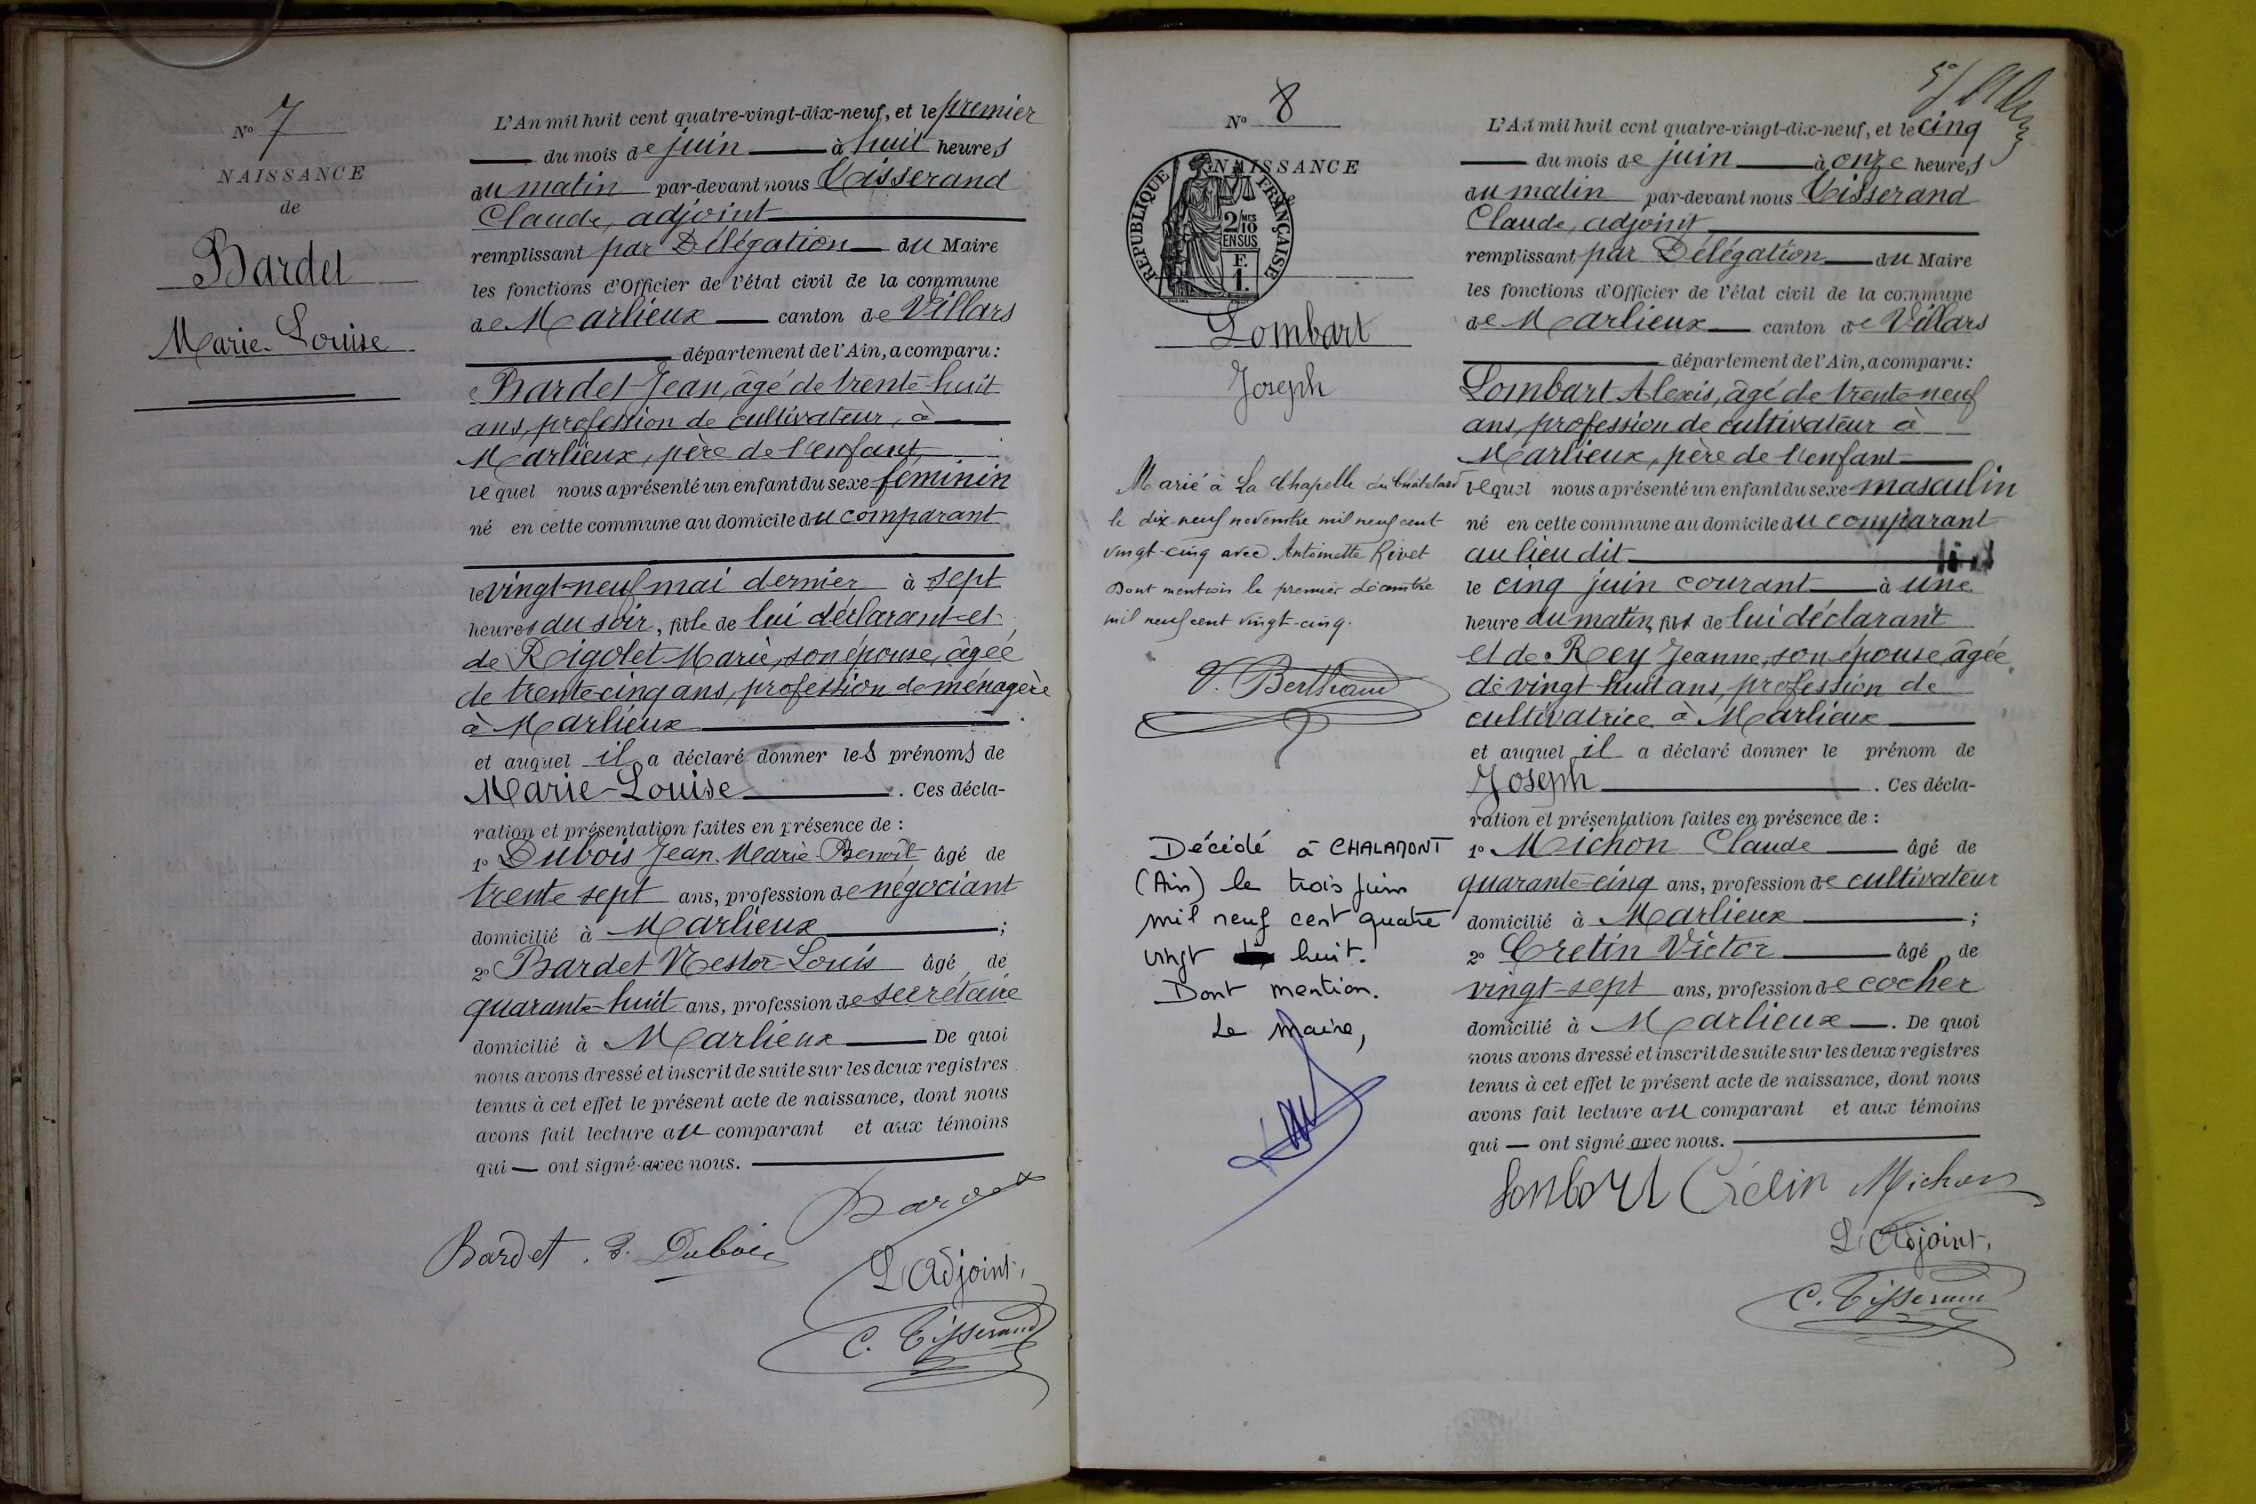 N° 7
NAISSANCE
de
Bardet
Marie-Louise
L'An mil huit cent quatre-vingt-dix-neuf, et le premier
du mois de juin à huit heures
du matin par-devant nous Tisserand
Claude, adjoint
remplissant par Délégation du Maire
les fonctions d'Officier de l'état civil de la commune
de Marlieux canton de Villars
département de l'Ain, a comparu:
Bardet Jean, âgé de trente-huit
ans, profession de cultivateur, à
Marlieux, père de l'enfant
lequel nous a présenté un enfant du sexe féminin
né en cette commune au domicile du comparant
le vingt-neuf mai dernier à sept
heures du soir, fille de lui déclarant et
de Rigolet Marie, son épouse, âgée
de trente-cinq ans, profession de ménagère
à Marlieux
et auquel il a déclaré donner les prénoms de
Marie-Louise. Ces décla-
ration et présentation faites en présence de :
1° Dubois Jean Marie Benoît âgé de
trente sept ans, profession de négociant
domicilié à Marlieux ;
2° Bardet Nestor-Louis âgé de
quarante-huit ans, profession de secrétaire
domicilié à Marlieux De quoi
nous avons dressé et inscrit de suite sur les deux registres
tenus à cet effet le présent acte de naissance, dont nous
avons fait lecture au comparant et aux témoins
qui — ont signé avec nous.
Bardet
Bardet. B. Dubois
L'Adjoint,
C. Tisserand
N° 8
NAISSANCE
RÉPUBLIQUE FRANÇAISE
2/10 MES
EN SUS
F.
1.
Lombart
Joseph
Marié à La Chapelle du Châtelard
le dix-neuf novembre mil neuf cent
vingt-cinq avec Antoinette Rivet
Dont mention le premier décembre
mil neuf cent vingt-cinq.
V. Berthaud
Décédé à CHALAMONT
(Ain) le trois juin
mil neuf cent quatre
vingt huit.
Dont mention.
Le Maire,
L'An mil huit cent quatre-vingt-dix-neuf, et le cinq
du mois de juin à onze heures
du matin par-devant nous Tisserand
Claude, adjoint
remplissant par Délégation du Maire
les fonctions d'Officier de l'état civil de la commune
de Marlieux canton de Villars
département de l'Ain, a comparu:
Lombart Alexis, âgé de trente-neuf
ans, profession de cultivateur à
Marlieux, père de l'enfant
lequel nous a présenté un enfant du sexe masculin
né en cette commune au domicile du comparant
au lieu dit
le cinq juin courant à une
heure du matin, fils de lui déclarant
et de Rey Jeanne, son épouse, âgée
de vingt-huit ans, profession de
cultivatrice à Marlieux
et auquel il a déclaré donner le prénom de
Joseph. Ces décla-
ration et présentation faites en présence de :
1° Michon Claude âgé de
quarante-cinq ans, profession de cultivateur
domicilié à Marlieux ;
2° Cretin Victor âgé de
vingt-sept ans, profession de cocher
domicilié à Marlieux. De quoi
nous avons dressé et inscrit de suite sur les deux registres
tenus à cet effet le présent acte de naissance, dont nous
avons fait lecture au comparant et aux témoins
qui — ont signé avec nous.
Lombart Crétin Michon
L'Adjoint,
C. Tisserand